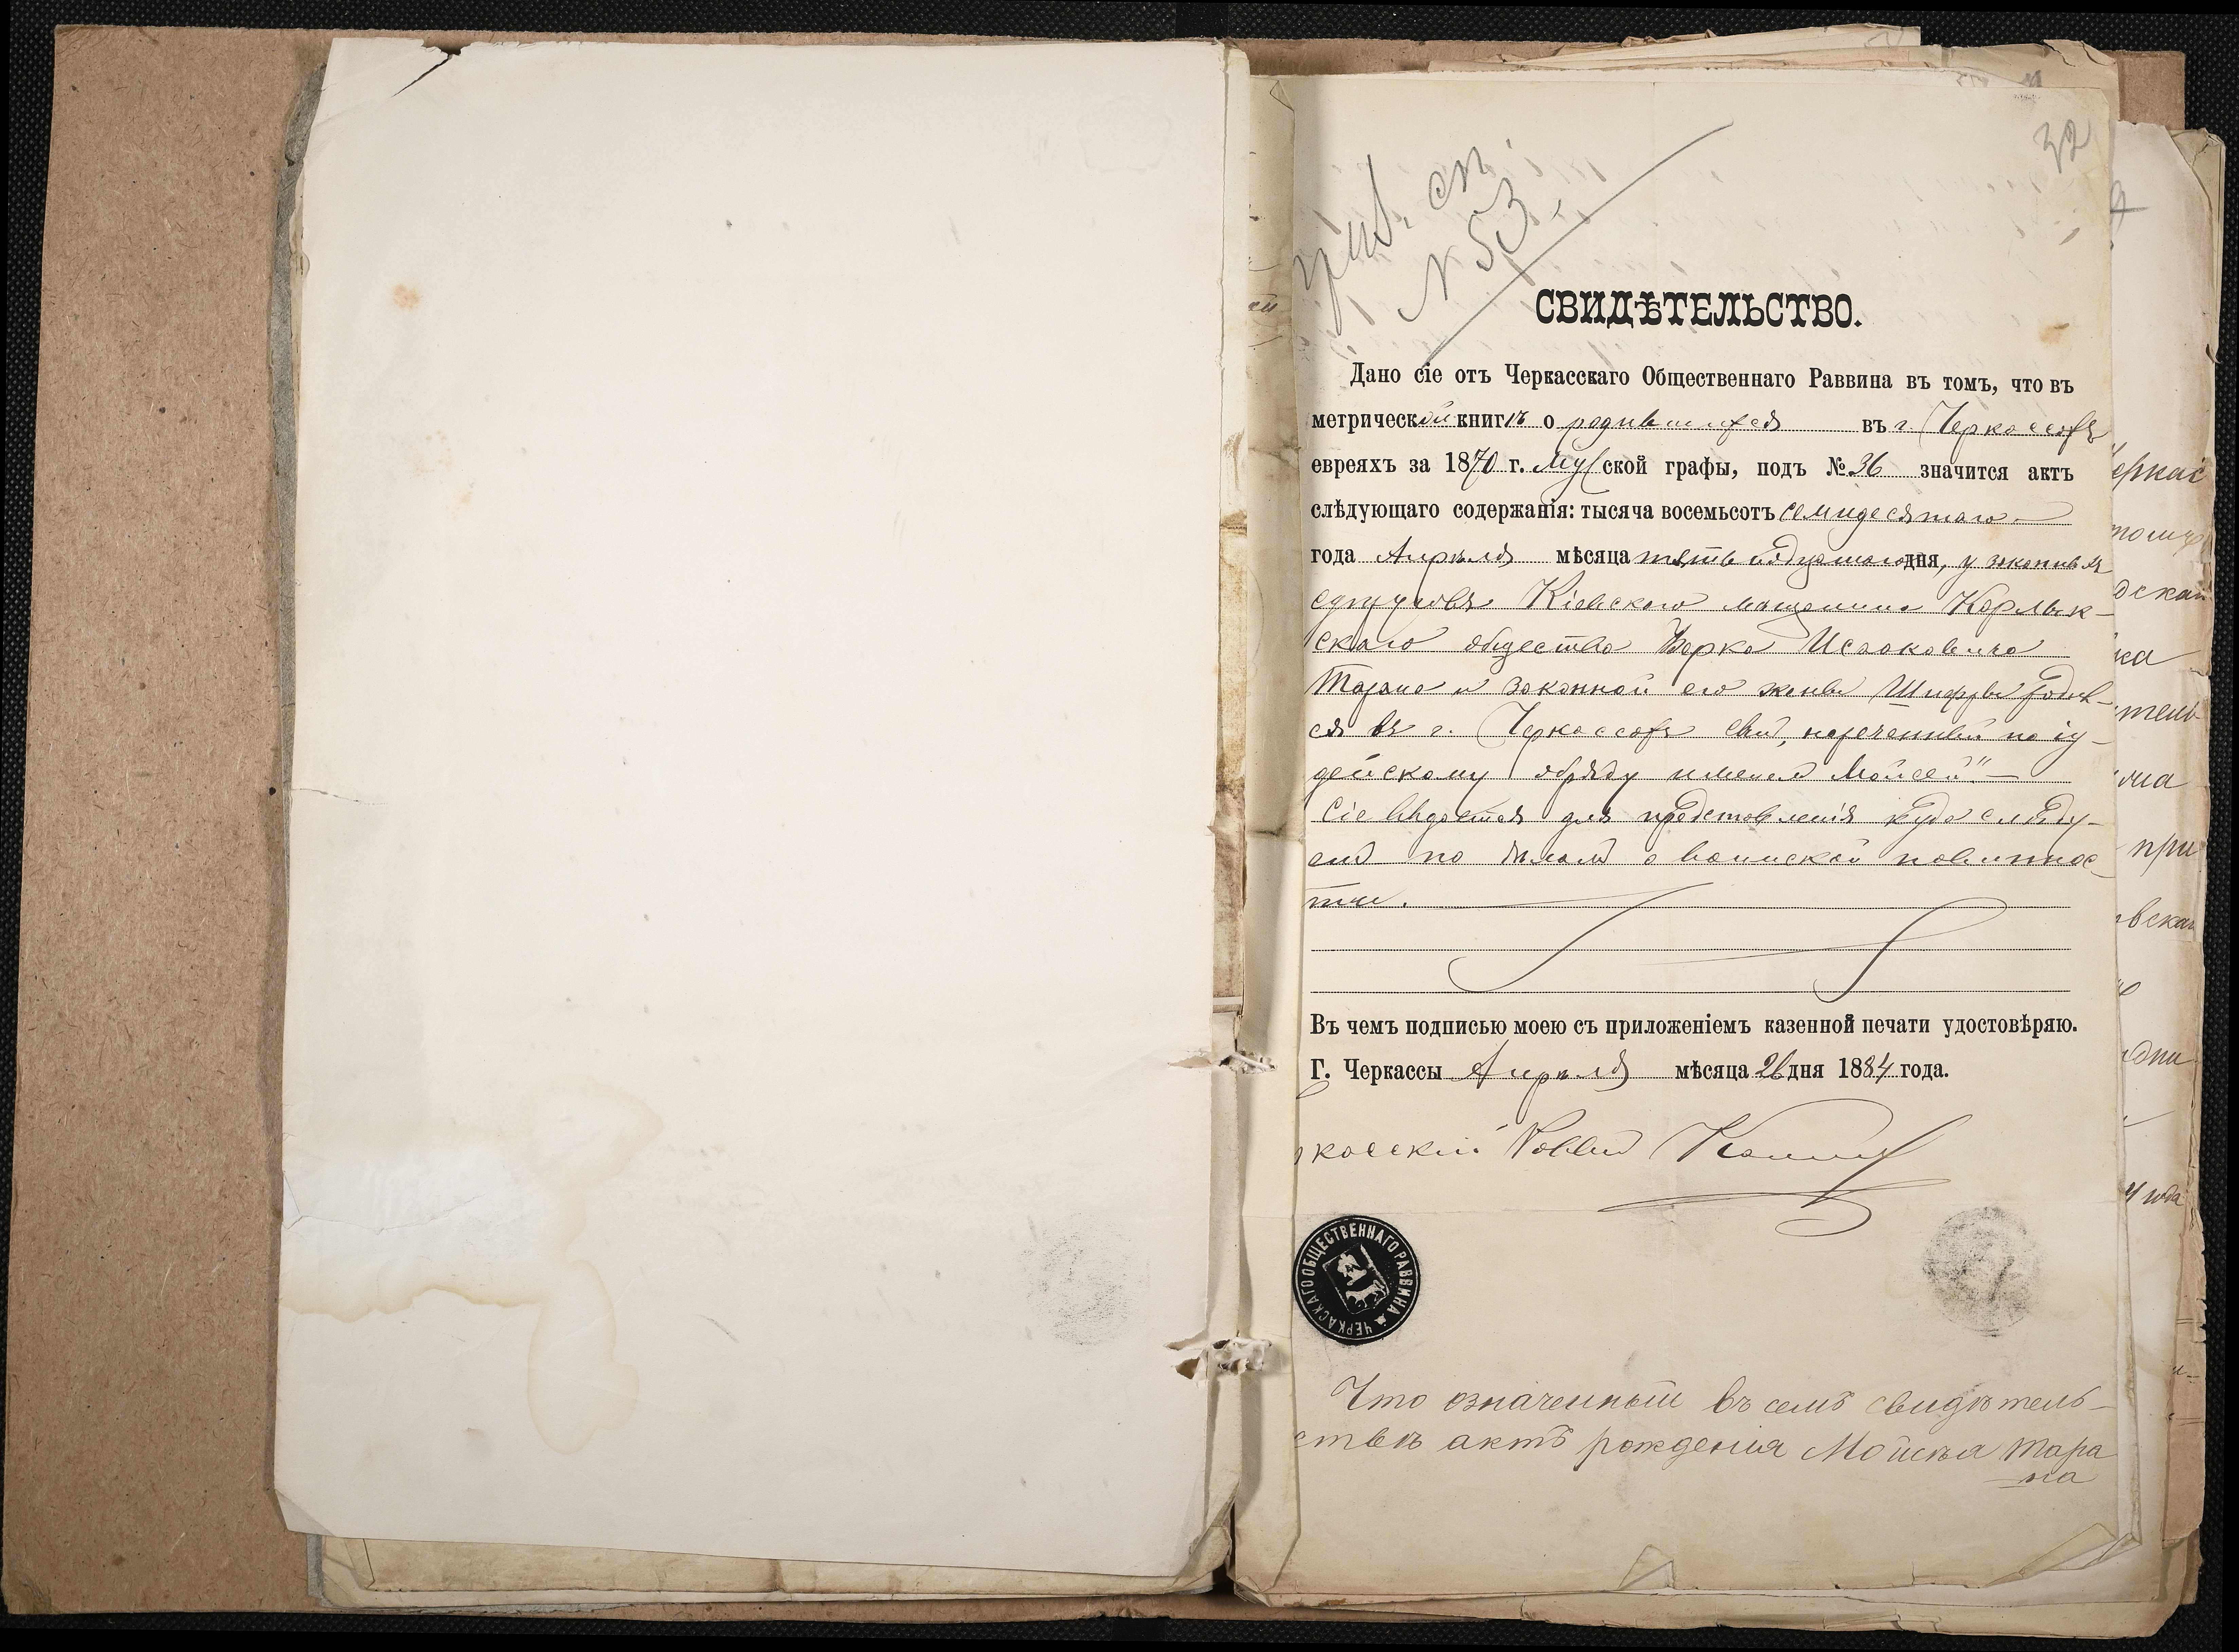 32
приб. сп.
№ 53.
СВИДѢТЕЛЬСТВО.
Дано сіе отъ Черкасскаго Общественнаго Раввина въ томъ, что въ
метрической книгѣ о родившихся въ г. Черкассахъ
евреяхъ за 1870 г. Мужской графы, подъ № 36 значится актъ
слѣдующаго содержанія: тысяча восемьсотъ семидесятаго
года Апрѣля мѣсяца дня, у законныхъ
супруговъ Кіевскаго мѣщанина
скаго общества Берка Исааковича
Тарана и законной его жены Шифры родил-
ся въ г. Черкассахъ сынъ, нареченный по іу-
дейскому обряду именемъ „Мойсей"—
Сіе выдается для представленія куда слѣду-
етъ по дѣламъ о воинской повиннос-
ти.
Въ чемъ подписью моею съ приложеніемъ казенной печати удостовѣряю.
Г. Черкассы Апрѣля мѣсяца 26 дня 1884 года.
ркасскій Раввинъ
ЧЕРКАСКАГО ОБЩЕСТВЕННАГО РАВВИНА
Что означенный въ семъ свидѣтель-
ствѣ актъ рожденія Мойсѣя Тара
на